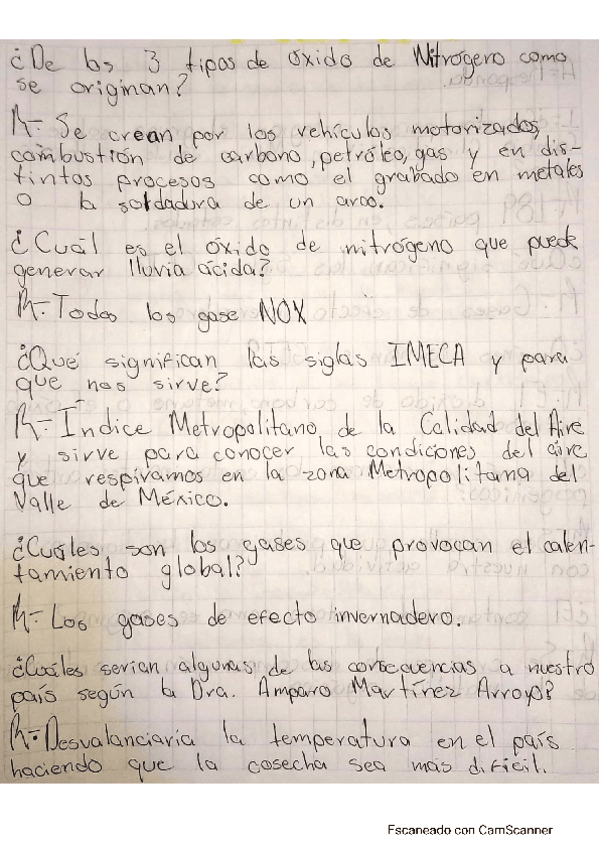 ¿De los 3 tipos de óxido de Nitrógeno como
se originan?
R= Se crean por los vehículos motorizados,
combustión de carbono, petróleo, gas y en dis-
tintos procesos como el grabado en metales
o la soldadura de un arco.
¿Cuál es el óxido de nitrógeno que puede
generar lluvia ácida?
R= Todos los gase NOX
¿Qué significan las siglas IMECA y para
que nos sirve?
R= Índice Metropolitano de la Calidad del Aire
y sirve para conocer las condiciones del aire
que respiramos en la zona Metropolitana del
Valle de México.
¿Cuáles son los gases que provocan el calen-
tamiento global?
R= Los gases de efecto invernadero.
¿Cuáles serian algunas de las consecuencias a nuestro
país según la Dra. Amparo Martínez Arroyo?
R= Desvalanciaría la temperatura en el país
haciendo que la cosecha sea más difícil.
Escaneado con CamScanner